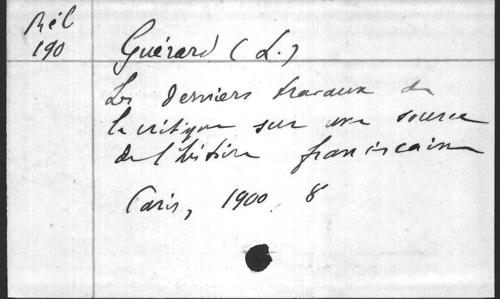 Rél
190
Guérard (L.)
Les derniers travaux de
la critique sur une source
de l'histoire franciscaine
Paris, 1900. 8